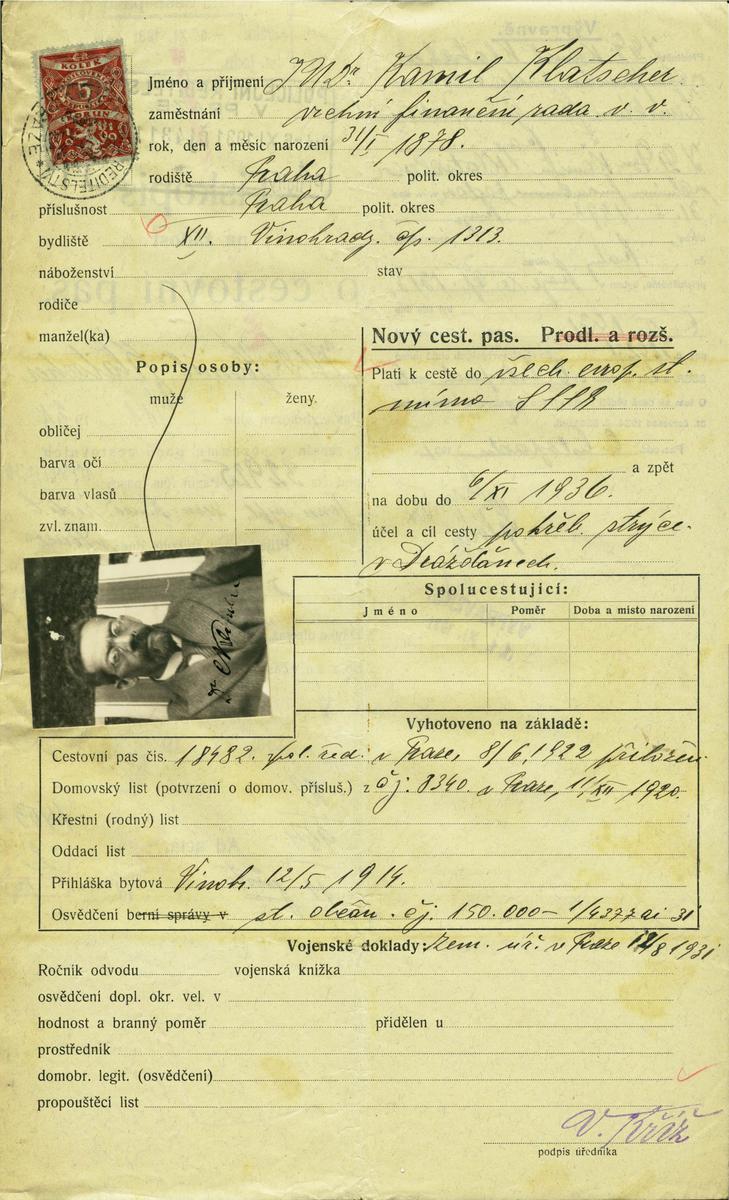 KOLEK
5
KORUN
Jméno a příjmení JUDr Kamil Klatscher
zaměstnání vrchní finanční rada v. v.
rok, den a měsíc narození 31/I 1878.
rodiště Praha polit. okres
příslušnost Praha polit. okres
bydliště XII. Vinohrady čp. 1313.
náboženství stav
rodiče
manžel(ka)
Popis osoby:
muže ženy.
obličej
barva očí
barva vlasů
zvl. znam.
Nový cest. pas. Prodl. a rozš.
Platí k cestě do všech evrop. st.
mimo SSSR
a zpět
na dobu do 6/XI 1936.
účel a cíl cesty pohřeb. strýce
v Drážďanech.
Spolucestující:
Jméno Poměr Doba a místo narození
Vyhotoveno na základě:
Cestovní pas čís. 18482. pol. řed. v Praze, 8/6, 1922 přiložen
Domovský list (potvrzení o domov. přísluš.) z čj: 8340. v Praze, 11/XII 1920.
Křestní (rodný) list
Oddací list
Přihláška bytová Vinoh. 12/5 1914.
Osvědčení berní správy v st. občan. čj. 150.000 – 1/4377 ai 31
zem. úř. v Praze 12/8 1931
Vojenské doklady:
Ročník odvodu vojenská knížka
osvědčení dopl. okr. vel. v
hodnost a branný poměr přidělen u
prostředník
domobr. legit. (osvědčení)
propouštěcí list
V. Kříž
podpis úředníka